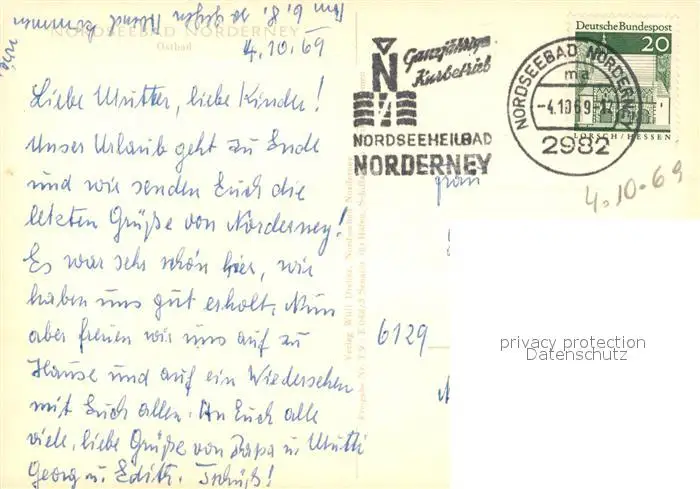 NORDSEEBAD NORDERNEY
Ostbad
4.10.69
Liebe Mutter, liebe Kinder!
Unser Urlaub geht zu Ende
und wir senden Euch die
letzten Grüße von Norderney!
Es war sehr schön hier, wir
haben uns gut erholt. Nun
aber freuen wir uns auf zu
Hause und auf ein Wiedersehen
mit Euch allen. An Euch alle
viele, liebe Grüße von Papa u. Mutti
Georg u. Edith. Tschüß!
Ganzjähriger
Kurbetrieb
N
NORDSEEHEILBAD
NORDERNEY
NORDSEEBAD NORDERNEY
ma
-4.10.69-17
2982
Deutsche Bundespost
20
LORSCH/HESSEN
4.10.69
Frau
6129
privacy protection
Datenschutz